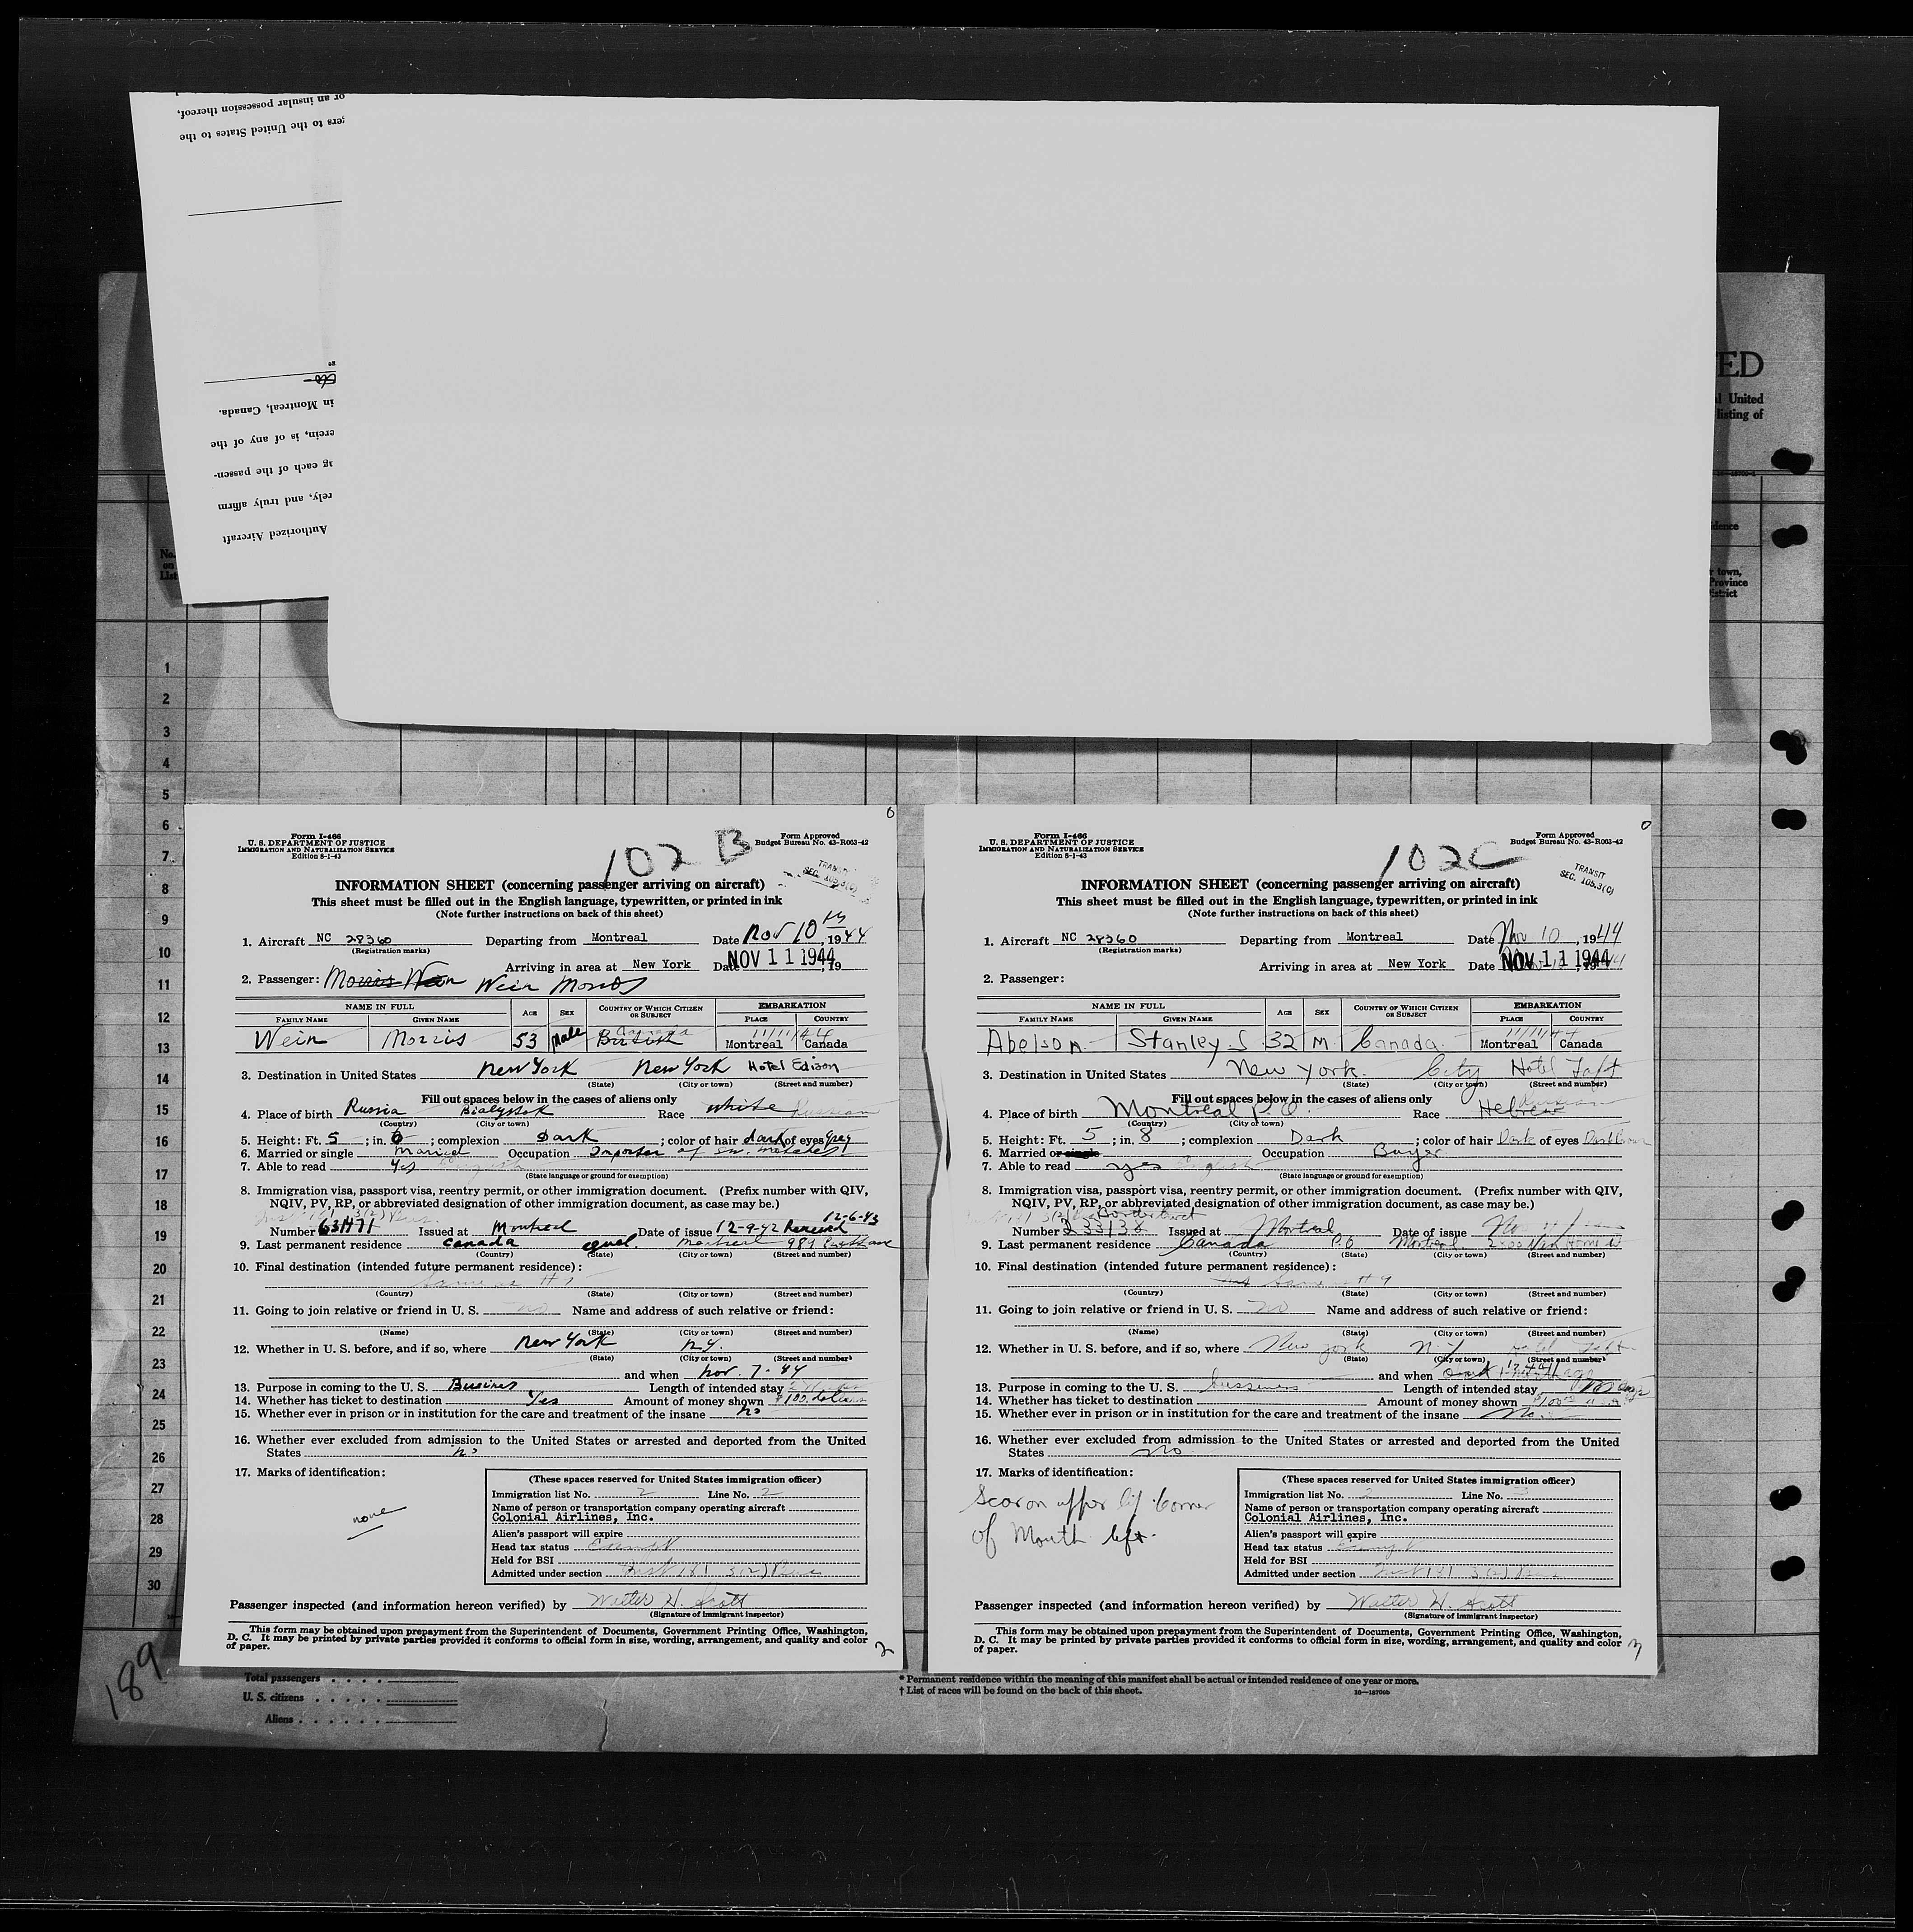 or an insular possession thereof,
gers to the United States to the
in Montreal, Canada.
erein, is of any of the
ng each of the passen-
rely, and truly affirm
Authorized Aircraft
ED
United
listing of
No.
on
List
idence
town,
Province
District
1
2
3
4
5
6
7
8
9
10
11
12
13
14
15
16
17
18
19
20
21
22
23
24
25
26
27
28
29
30
189
0
Form I-466
U. S. DEPARTMENT OF JUSTICE
IMMIGRATION AND NATURALIZATION SERVICE
Edition 8-1-43
102 B
Form Approved
Budget Bureau No. 43-R063-42
TRANSIT
SEC. 105.3(C)
INFORMATION SHEET (concerning passenger arriving on aircraft)
This sheet must be filled out in the English language, typewritten, or printed in ink
(Note further instructions on back of this sheet)
1. Aircraft NC 28360 Departing from Montreal Date Nov 10 th, 1944
(Registration marks)
Arriving in area at New York Date NOV 11 1944, 19
2. Passenger: Morris Wein Wein Morris
NAME IN FULL AGE SEX COUNTRY OF WHICH CITIZEN OR SUBJECT EMBARKATION
FAMILY NAME GIVEN NAME PLACE COUNTRY
Canada 11/11/44
Wein Morris 53 Male British Montreal Canada
3. Destination in United States New York New York Hotel Edison
(State) (City or town) (Street and number)
Fill out spaces below in the cases of aliens only
4. Place of birth Russia Bialystok Race White Russian
(Country) (City or town)
5. Height: Ft. 5 ; in. 6 ; complexion Dark ; color of hair dark of eyes Grey
6. Married or single Maried Occupation Importer of Sw. Watches
7. Able to read Yes English
(State language or ground for exemption)
8. Immigration visa, passport visa, reentry permit, or other immigration document. (Prefix number with QIV,
NQIV, PV, RP, or abbreviated designation of other immigration document, as case may be.)
Number 63471 Issued at Montreal Date of issue 12-9-42 Renewed 12-6-43
9. Last permanent residence Canada Montreal 989
(Country) (State) (City or town) (Street and number)
10. Final destination (intended future permanent residence):
Same as #9
(Country) (State) (City or town) (Street and number)
11. Going to join relative or friend in U. S. no Name and address of such relative or friend:
(Name) (State) (City or town) (Street and number)
12. Whether in U. S. before, and if so, where New York N.Y.
(State) (City or town) (Street and number)
and when Nov. 7-44
13. Purpose in coming to the U. S. Business Length of intended stay
14. Whether has ticket to destination Yes Amount of money shown $100 dollars
15. Whether ever in prison or in institution for the care and treatment of the insane No
16. Whether ever excluded from admission to the United States or arrested and deported from the United
States No
17. Marks of identification:
none
(These spaces reserved for United States immigration officer)
Immigration list No. 2 Line No. 2
Name of person or transportation company operating aircraft
Colonial Airlines, Inc.
Alien's passport will expire
Head tax status Exempt
Held for BSI
Admitted under section 3(2)
Passenger inspected (and information hereon verified) by Walter H. Scott
(Signature of immigrant inspector)
This form may be obtained upon prepayment from the Superintendent of Documents, Government Printing Office, Washington,
D. C. It may be printed by private parties provided it conforms to official form in size, wording, arrangement, and quality and color
of paper.
2
0
Form I-466
U. S. DEPARTMENT OF JUSTICE
IMMIGRATION AND NATURALIZATION SERVICE
Edition 8-1-43
102 C
Form Approved
Budget Bureau No. 43-R063-42
TRANSIT
SEC. 105.3(C)
INFORMATION SHEET (concerning passenger arriving on aircraft)
This sheet must be filled out in the English language, typewritten, or printed in ink
(Note further instructions on back of this sheet)
1. Aircraft NC 28360 Departing from Montreal Date Nov 10, 1944
(Registration marks)
Arriving in area at New York Date NOV 11 1944, 1944
2. Passenger:
NAME IN FULL AGE SEX COUNTRY OF WHICH CITIZEN OR SUBJECT EMBARKATION
FAMILY NAME GIVEN NAME PLACE COUNTRY
11/11/44
Abelson Stanley S 32 M Canada Montreal Canada
3. Destination in United States New York. City Hotel Taft
(State) (City or town) (Street and number)
Fill out spaces below in the cases of aliens only
4. Place of birth Montreal P.Q. Race Hebrew Russian
(Country) (City or town)
5. Height: Ft. 5 ; in. 8 ; complexion Dark ; color of hair Dark of eyes Dark Brown
6. Married or single Occupation Buyer
7. Able to read yes English
(State language or ground for exemption)
8. Immigration visa, passport visa, reentry permit, or other immigration document. (Prefix number with QIV,
NQIV, PV, RP, or abbreviated designation of other immigration document, as case may be.)
Number 233138 Issued at Montreal Date of issue
9. Last permanent residence Canada P.Q Montreal
(Country) (State) (City or town) (Street and number)
10. Final destination (intended future permanent residence):
Same as #9
(Country) (State) (City or town) (Street and number)
11. Going to join relative or friend in U. S. no Name and address of such relative or friend:
(Name) (State) (City or town) (Street and number)
12. Whether in U. S. before, and if so, where New York N.Y Hotel Taft
(State) (City or town) (Street and number)
and when
13. Purpose in coming to the U. S. bussiness Length of intended stay
14. Whether has ticket to destination Amount of money shown
15. Whether ever in prison or in institution for the care and treatment of the insane No.
16. Whether ever excluded from admission to the United States or arrested and deported from the United
States no
17. Marks of identification:
Scar on upper lip corner
of Mouth left.
(These spaces reserved for United States immigration officer)
Immigration list No. 2 Line No. 3
Name of person or transportation company operating aircraft
Colonial Airlines, Inc.
Alien's passport will expire
Head tax status Exempt
Held for BSI
Admitted under section 3(2)
Passenger inspected (and information hereon verified) by Walter H. Scott
(Signature of immigrant inspector)
This form may be obtained upon prepayment from the Superintendent of Documents, Government Printing Office, Washington,
D. C. It may be printed by private parties provided it conforms to official form in size, wording, arrangement, and quality and color
of paper.
3
Total passengers
U. S. citizens
Aliens
* Permanent residence within the meaning of this manifest shall be actual or intended residence of one year or more.
† List of races will be found on the back of this sheet.